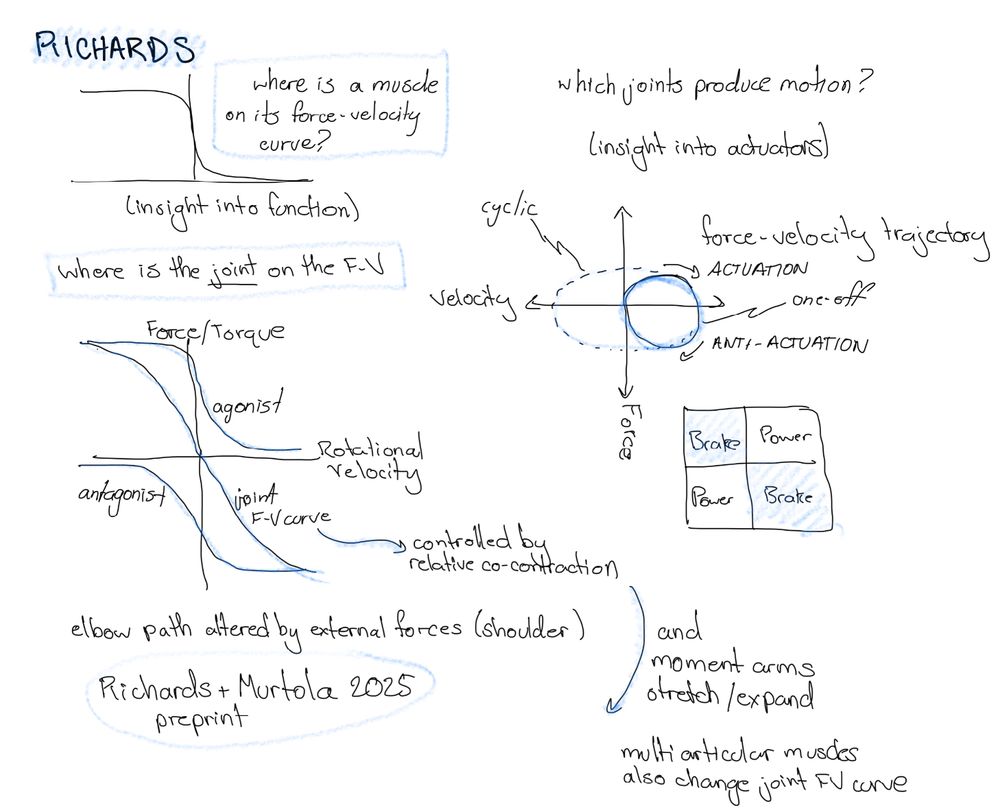 RICHARDS
where is a muscle
on its force-velocity
curve?
(insight into function)
where is the joint on the F-V
which joints produce motion?
(insight into actuators)
cyclic
force-velocity trajectory
ACTUATION
velocity
one-off
ANTI-ACTUATION
Force
Brake
Power
Power
Brake
Force/Torque
agonist
Rotational
velocity
antagonist
joint
F-V curve
controlled by
relative co-contraction
elbow path altered by external forces (shoulder)
and
moment arms
stretch/expand
Richards + Murtola 2025
preprint
multi articular muscles
also change joint FV curve